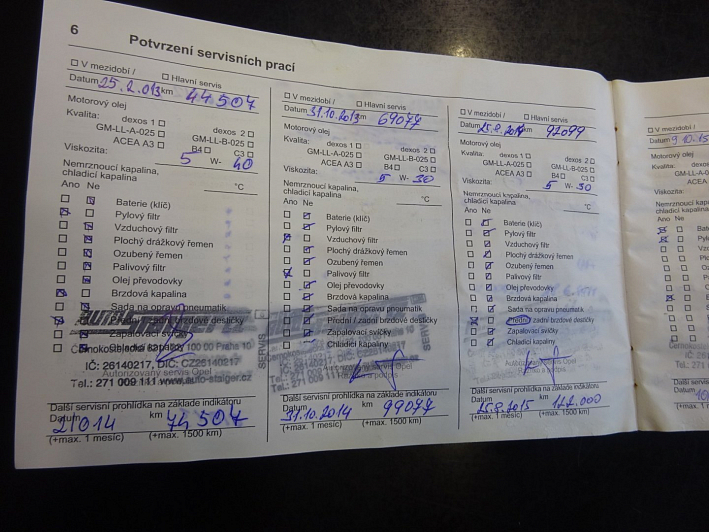 6
Potvrzení servisních prací
V mezidobí / Hlavní servis
Datum 25.2.013 km 44507
Motorový olej
Kvalita: dexos 1 dexos 2
GM-LL-A-025 GM-LL-B-025
ACEA A3 B4 C3
Viskozita: 5 W- 40
Nemrznoucí kapalina,
chladicí kapalina °C
Ano Ne
Baterie (klíč)
Pylový filtr
Vzduchový filtr
Plochý drážkový řemen
Ozubený řemen
Palivový filtr
Olej převodovky
Brzdová kapalina
Sada na opravu pneumatik
brzdové destičky
Zapalovací svíčky
100 00 Praha 10
IČ: 26140217, DIČ: CZ26140217
Autorizovaný servis Opel
Tel.: 271 009 111 www.auto-staiger.cz
Další servisní prohlídka na základě indikátoru
Datum km
2/014 74 507
(+max. 1 měsíc) (+max. 1500 km)
V mezidobí / Hlavní servis
Datum 31.10.2013 km 69077
Motorový olej
Kvalita: dexos 1 dexos 2
GM-LL-A-025 GM-LL-B-025
ACEA A3 B4 C3
Viskozita: 5 W- 30
Nemrznoucí kapalina,
chladicí kapalina °C
Ano Ne
Baterie (klíč)
Pylový filtr
Vzduchový filtr
Plochý drážkový řemen
Ozubený řemen
Palivový filtr
Olej převodovky
Brzdová kapalina
Sada na opravu pneumatik
Přední / zadní brzdové destičky
Zapalovací svíčky
Chladicí kapaliny
SERVIS
Další servisní prohlídka na základě indikátoru
Datum km
31.10.2014 99077
(+max. 1 měsíc) (+max. 1500 km)
V mezidobí / Hlavní servis
Datum 25.9.2014 km 92099
Motorový olej
Kvalita: dexos 1 dexos 2
GM-LL-A-025 GM-LL-B-025
ACEA A3 B4 C3
Viskozita: 5 W- 30
Nemrznoucí kapalina,
chladicí kapalina °C
Ano Ne
Baterie (klíč)
Pylový filtr
Vzduchový filtr
Plochý drážkový řemen
Ozubený řemen
Palivový filtr
Olej převodovky
Brzdová kapalina
Sada na opravu pneumatik
Přední / zadní brzdové destičky
Zapalovací svíčky
Chladicí kapaliny
Autorizovaný servis Opel
Další servisní prohlídka na základě indikátoru
Datum km
25.9.2015 122.000
(+max. 1 měsíc) (+max. 1500 km)
V mezidobí /
Datum 9.10.15
Motorový olej
Kvalita:
Viskozita:
Nemrznoucí
chladicí
Ano Ne